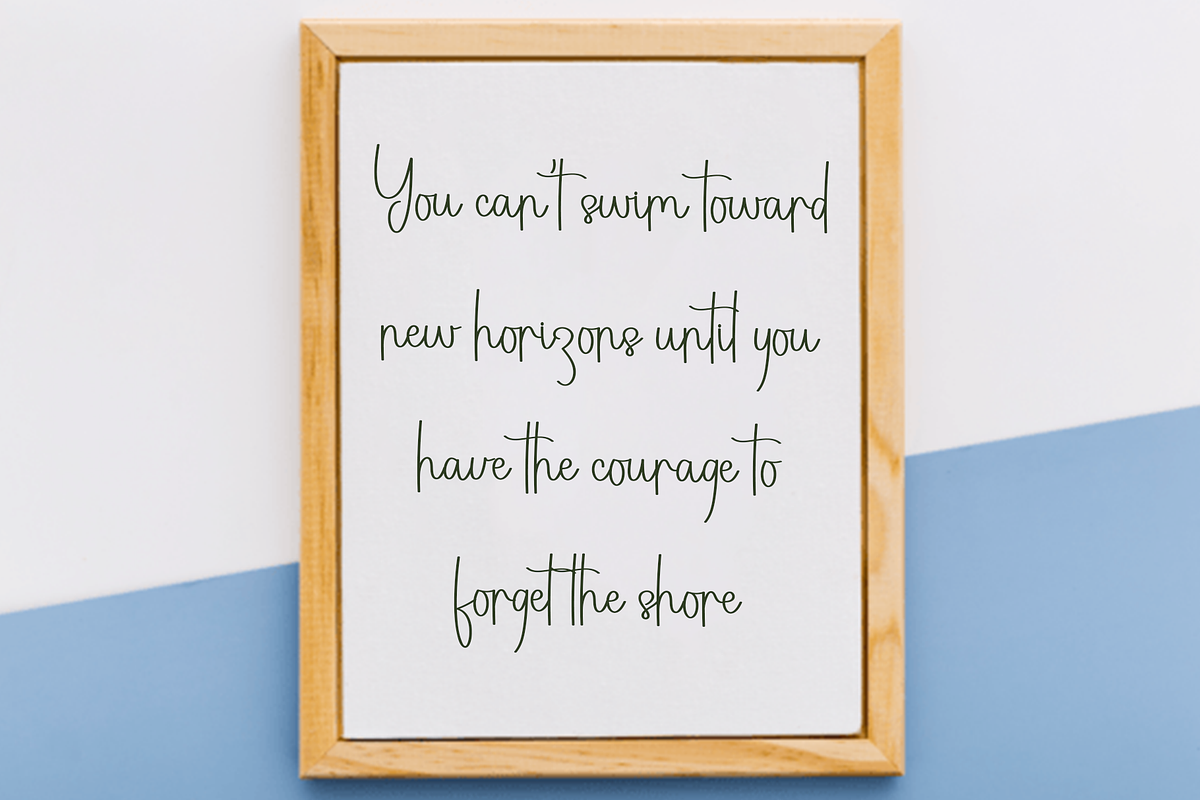 You can't swim toward
new horizons until you
have the courage to
forget the shore